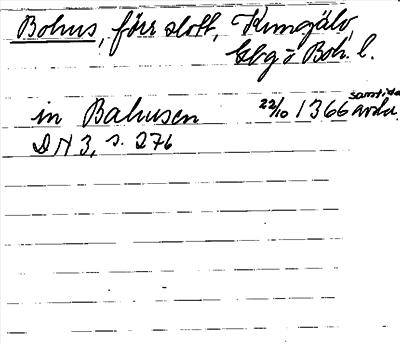 Bohus, förr slott, Kungälv,
Gbg o Boh. l.
samtida
in Bahusen 22/10 1366 avskr.
DN 3, s. 276